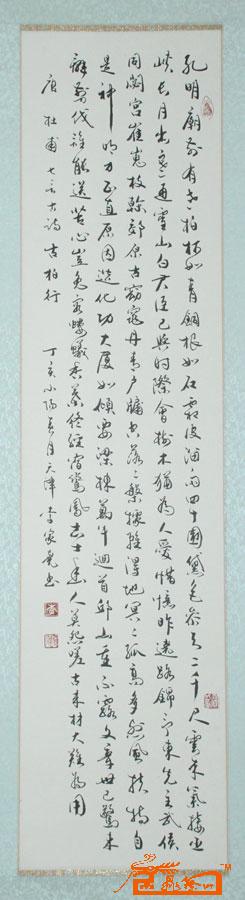 孔明廟前有老柏柯如青銅根如石霜皮溜雨四十圍黛色參天二千尺雲來氣接巫
峽長月出寒通雪山白君臣已與時際會樹木猶為人愛惜憶昨遶路錦亭東先主武侯
同閟宮崔嵬枝幹郊原古窈窕丹青戶牖空落〻盤據雖得地冥〻孤高多烈風扶持自
是神明力正直原因造化功大廈如傾要梁棟萬牛迴首邱山重不露文章世已驚未
辭翦伐誰能送苦心豈免容螻蟻香葉終經宿鸞鳳志士幽人莫怨嗟古來材大難為用
唐 杜甫七言古詩 古柏行 丁亥小陽春月天津李家堯書